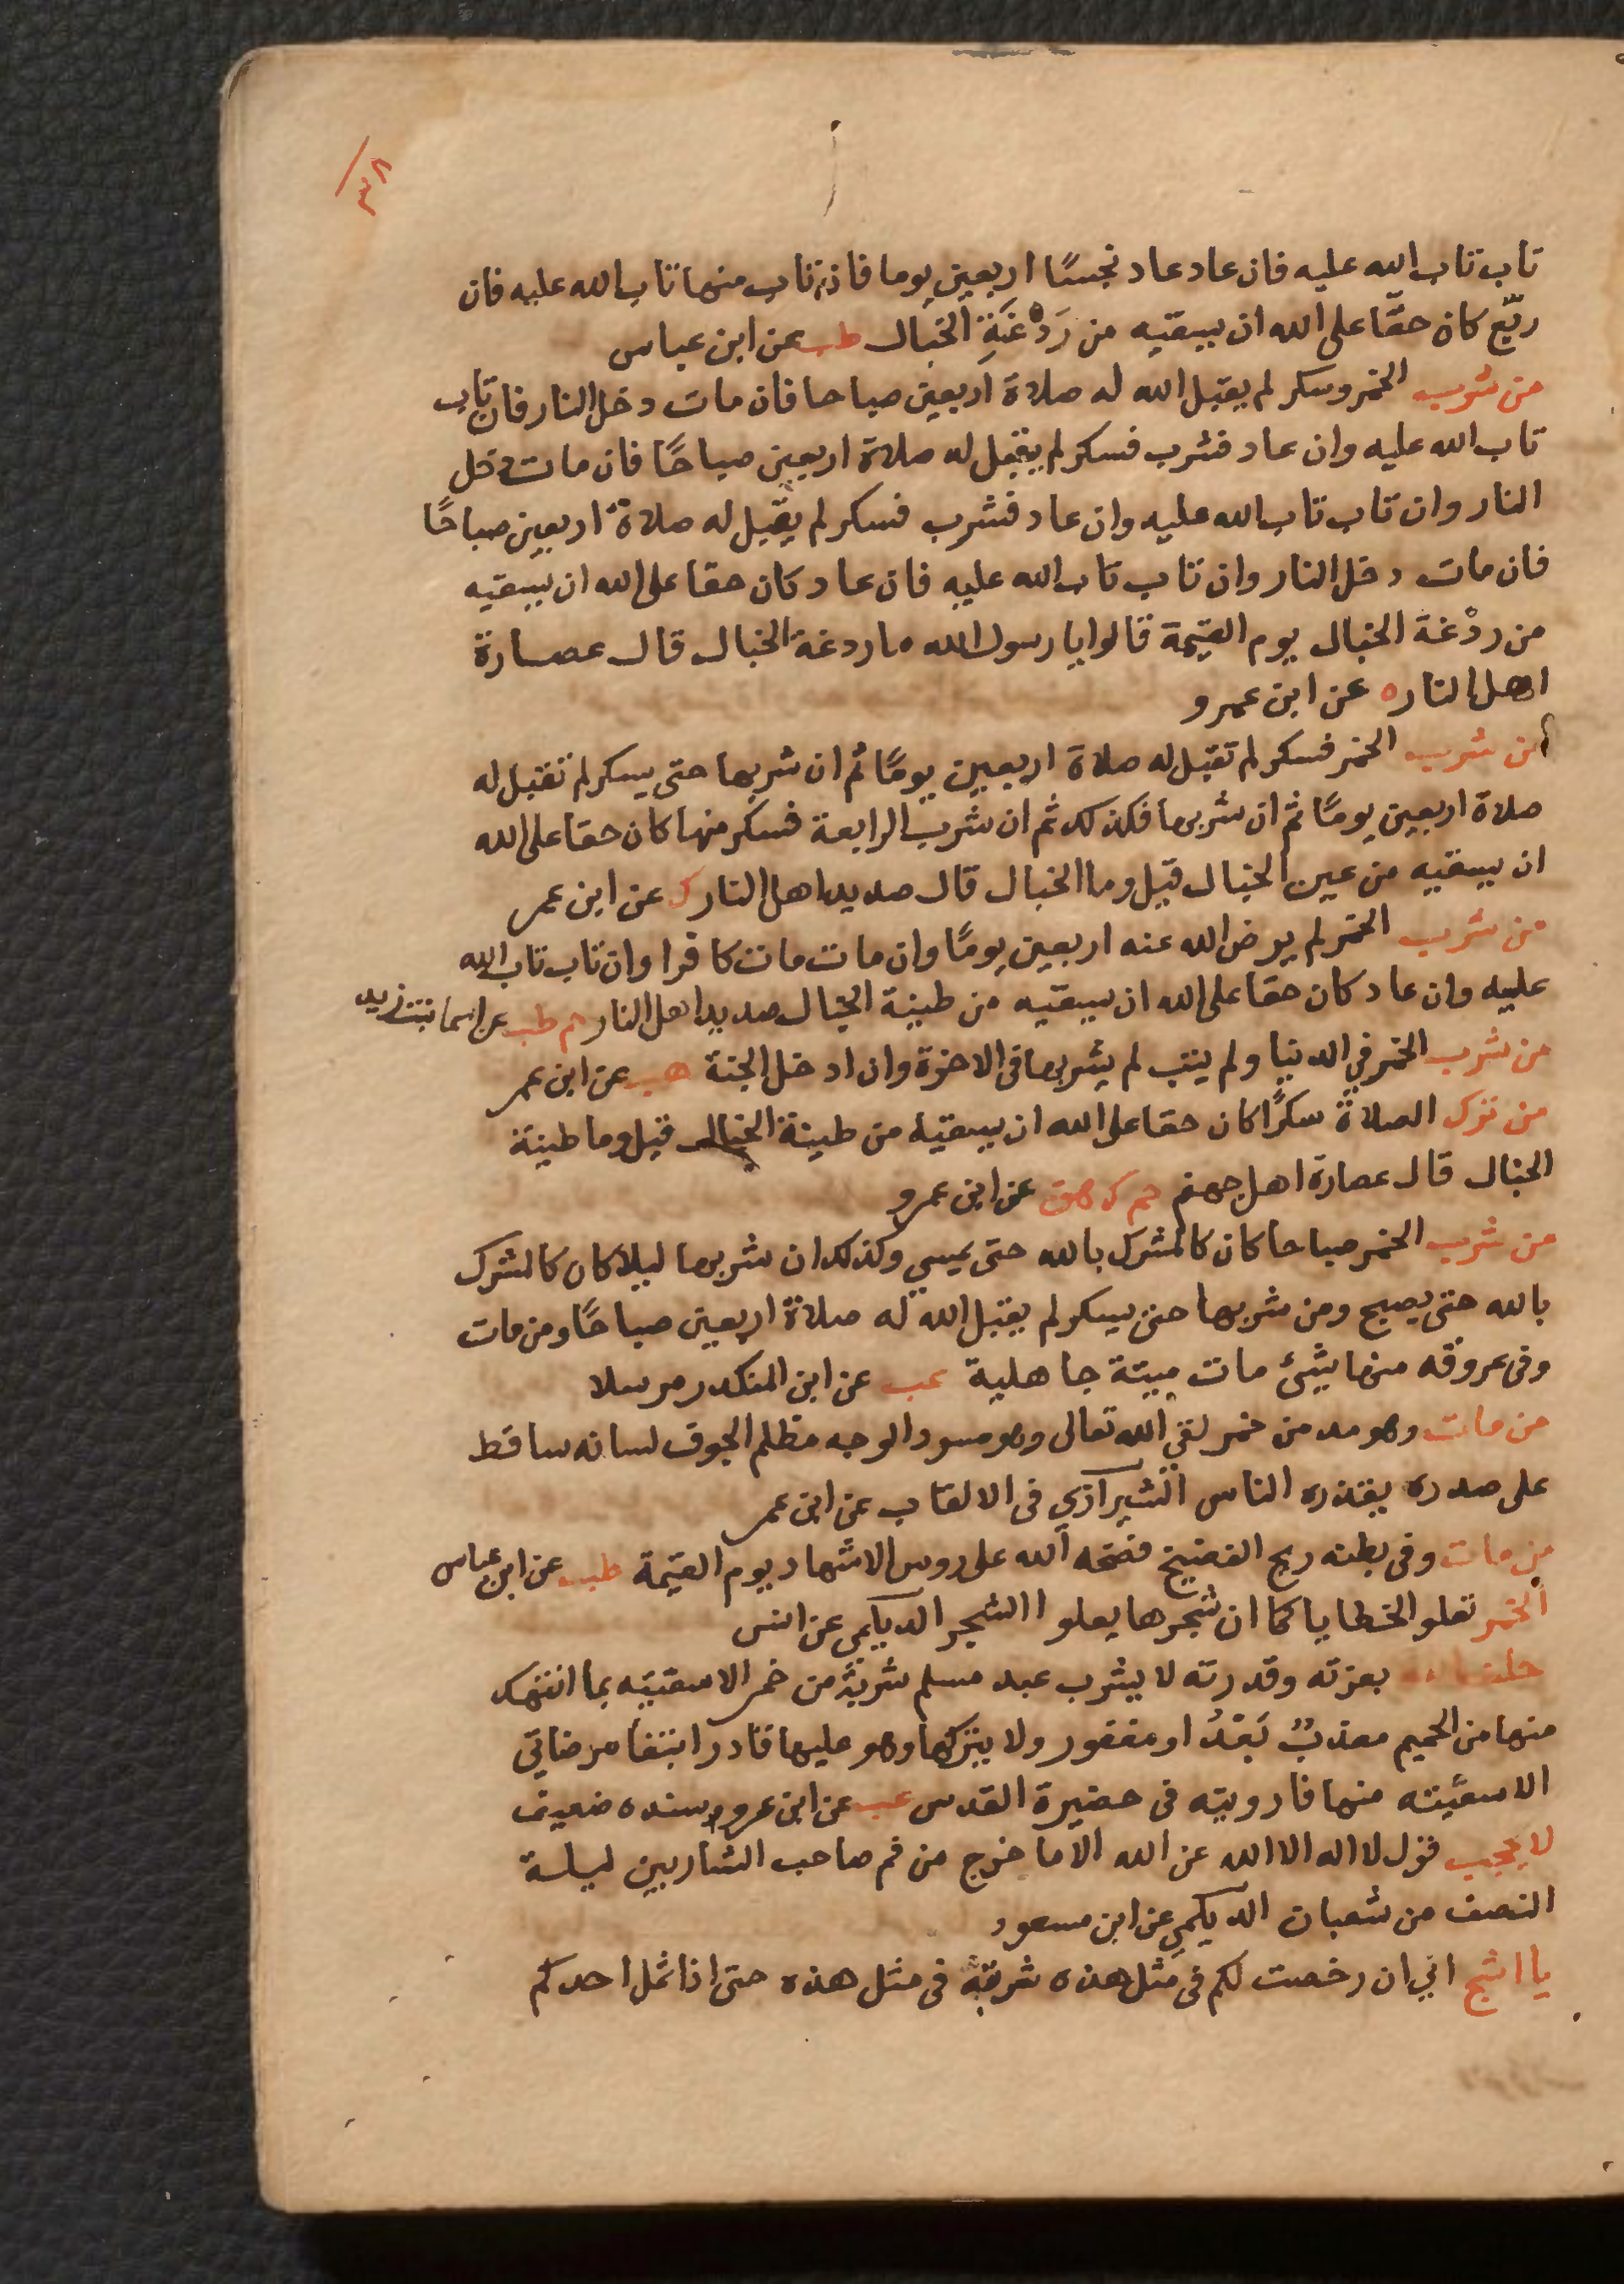 ٣٨
تاب تاب الله عليه فان عاد عاد نجسًا اربعين يوما فان تاب منها تاب الله عليه فان
ربّع كان حقًا على الله ان يسقيه من رَدْغَةِ الخبال طب عن ابن عباس
من شرب الخمر وسكر لم يقبل الله له صلاة اربعين صباحا فان مات دخل النار فان تاب
تاب الله عليه وان عاد فشرب فسكر لم يقبل له صلاة اربعين صباحًا فان مات دخل
النار وان تاب تاب الله عليه وان عاد فشرب فسكر لم يقبل له صلاة اربعين صباحًا
فان مات دخل النار وان تاب تاب الله عليه فان عاد كان حقا على الله ان يسقيه
من ردْغة الخبال يوم القيمة قالوا يا رسول الله ما ردغة الخبال قال عصارة
اهل النار ه عن ابن عمرو
من شرب الخمر فسكر لم تقبل له صلاة اربعين يومًا ثم ان شربها حتى يسكر لم تقبل له
صلاة اربعين يومًا ثم ان شربها فكذلك ثم ان شرب الرابعة فسكر منها كان حقا على الله
ان يسقيه من عين الخبال قيل وما الخبال قال صديد اهل النار ك عن ابن عمر
من شرب الخمر لم يرض الله عنه اربعين يومًا وان مات مات كافرا وان تاب تاب الله
عليه وان عاد كان حقا على الله ان يسقيه من طينة الخبال صديد اهل النار حم طب عن اسما بنت يزيد
من شرب الخمر في الدنيا ولم يتب لم يشربها فى الاخرة وان ادخل الجنة هب عن ابن عمر
من ترك الصلاة سكرًا كان حقا على الله ان يسقيه من طينة الخبال قيل وما طينة
الخبال قال عصارة اهل جهنم حم ك هق عن ابن عمرو
من شرب الخمر صباحا كان كالمشرك بالله حتى يمسي وكذلك ان شربها ليلا كان كالمشرك
بالله حتى يصبح ومن شربها حتى يسكر لم يقبل الله له صلاة اربعين صباحًا ومن مات
وفى عروقه منها شئ مات ميتة جاهلية عب عن ابن المنكدر مرسلا
من مات وهو مدمن خمر لقي الله تعالى وهو مسود الوجه مظلم الجوف لسانه ساقط
على صدره يقذره الناس الشيرازي فى الالقاب عن ابن عمر
من مات وفى بطنه ريح الفضيخ فضحه الله على روس الاشهاد يوم القيمة طب عن ابن عباس
الخمر تعلو الخطايا كما ان شجرها يعلو الشجر الديلمى عن انس
حلف الله بعزته وقدرته لا يشرب عبد مسلم شربة من خمر الا سقيته بما انتهك
منها من الحميم معذبٌ بَعْدُ او مغفور ولا يتركها وهو عليها قادر ابتغا مرضاتي
الا سقيته منها فارويته فى حضيرة القدس عب عن ابن عمرو وسنده ضعيف
لا يحجب قول لا اله الا الله عن الله الا ما خرج من فم صاحب الشاربين ليلة
النصف من شعبان الديلمي عن ابن مسعود
يا اشج اني ان رخصت لكم فى مثل هذه شربته فى مثل هذه حتى اذا ثمل احدكم